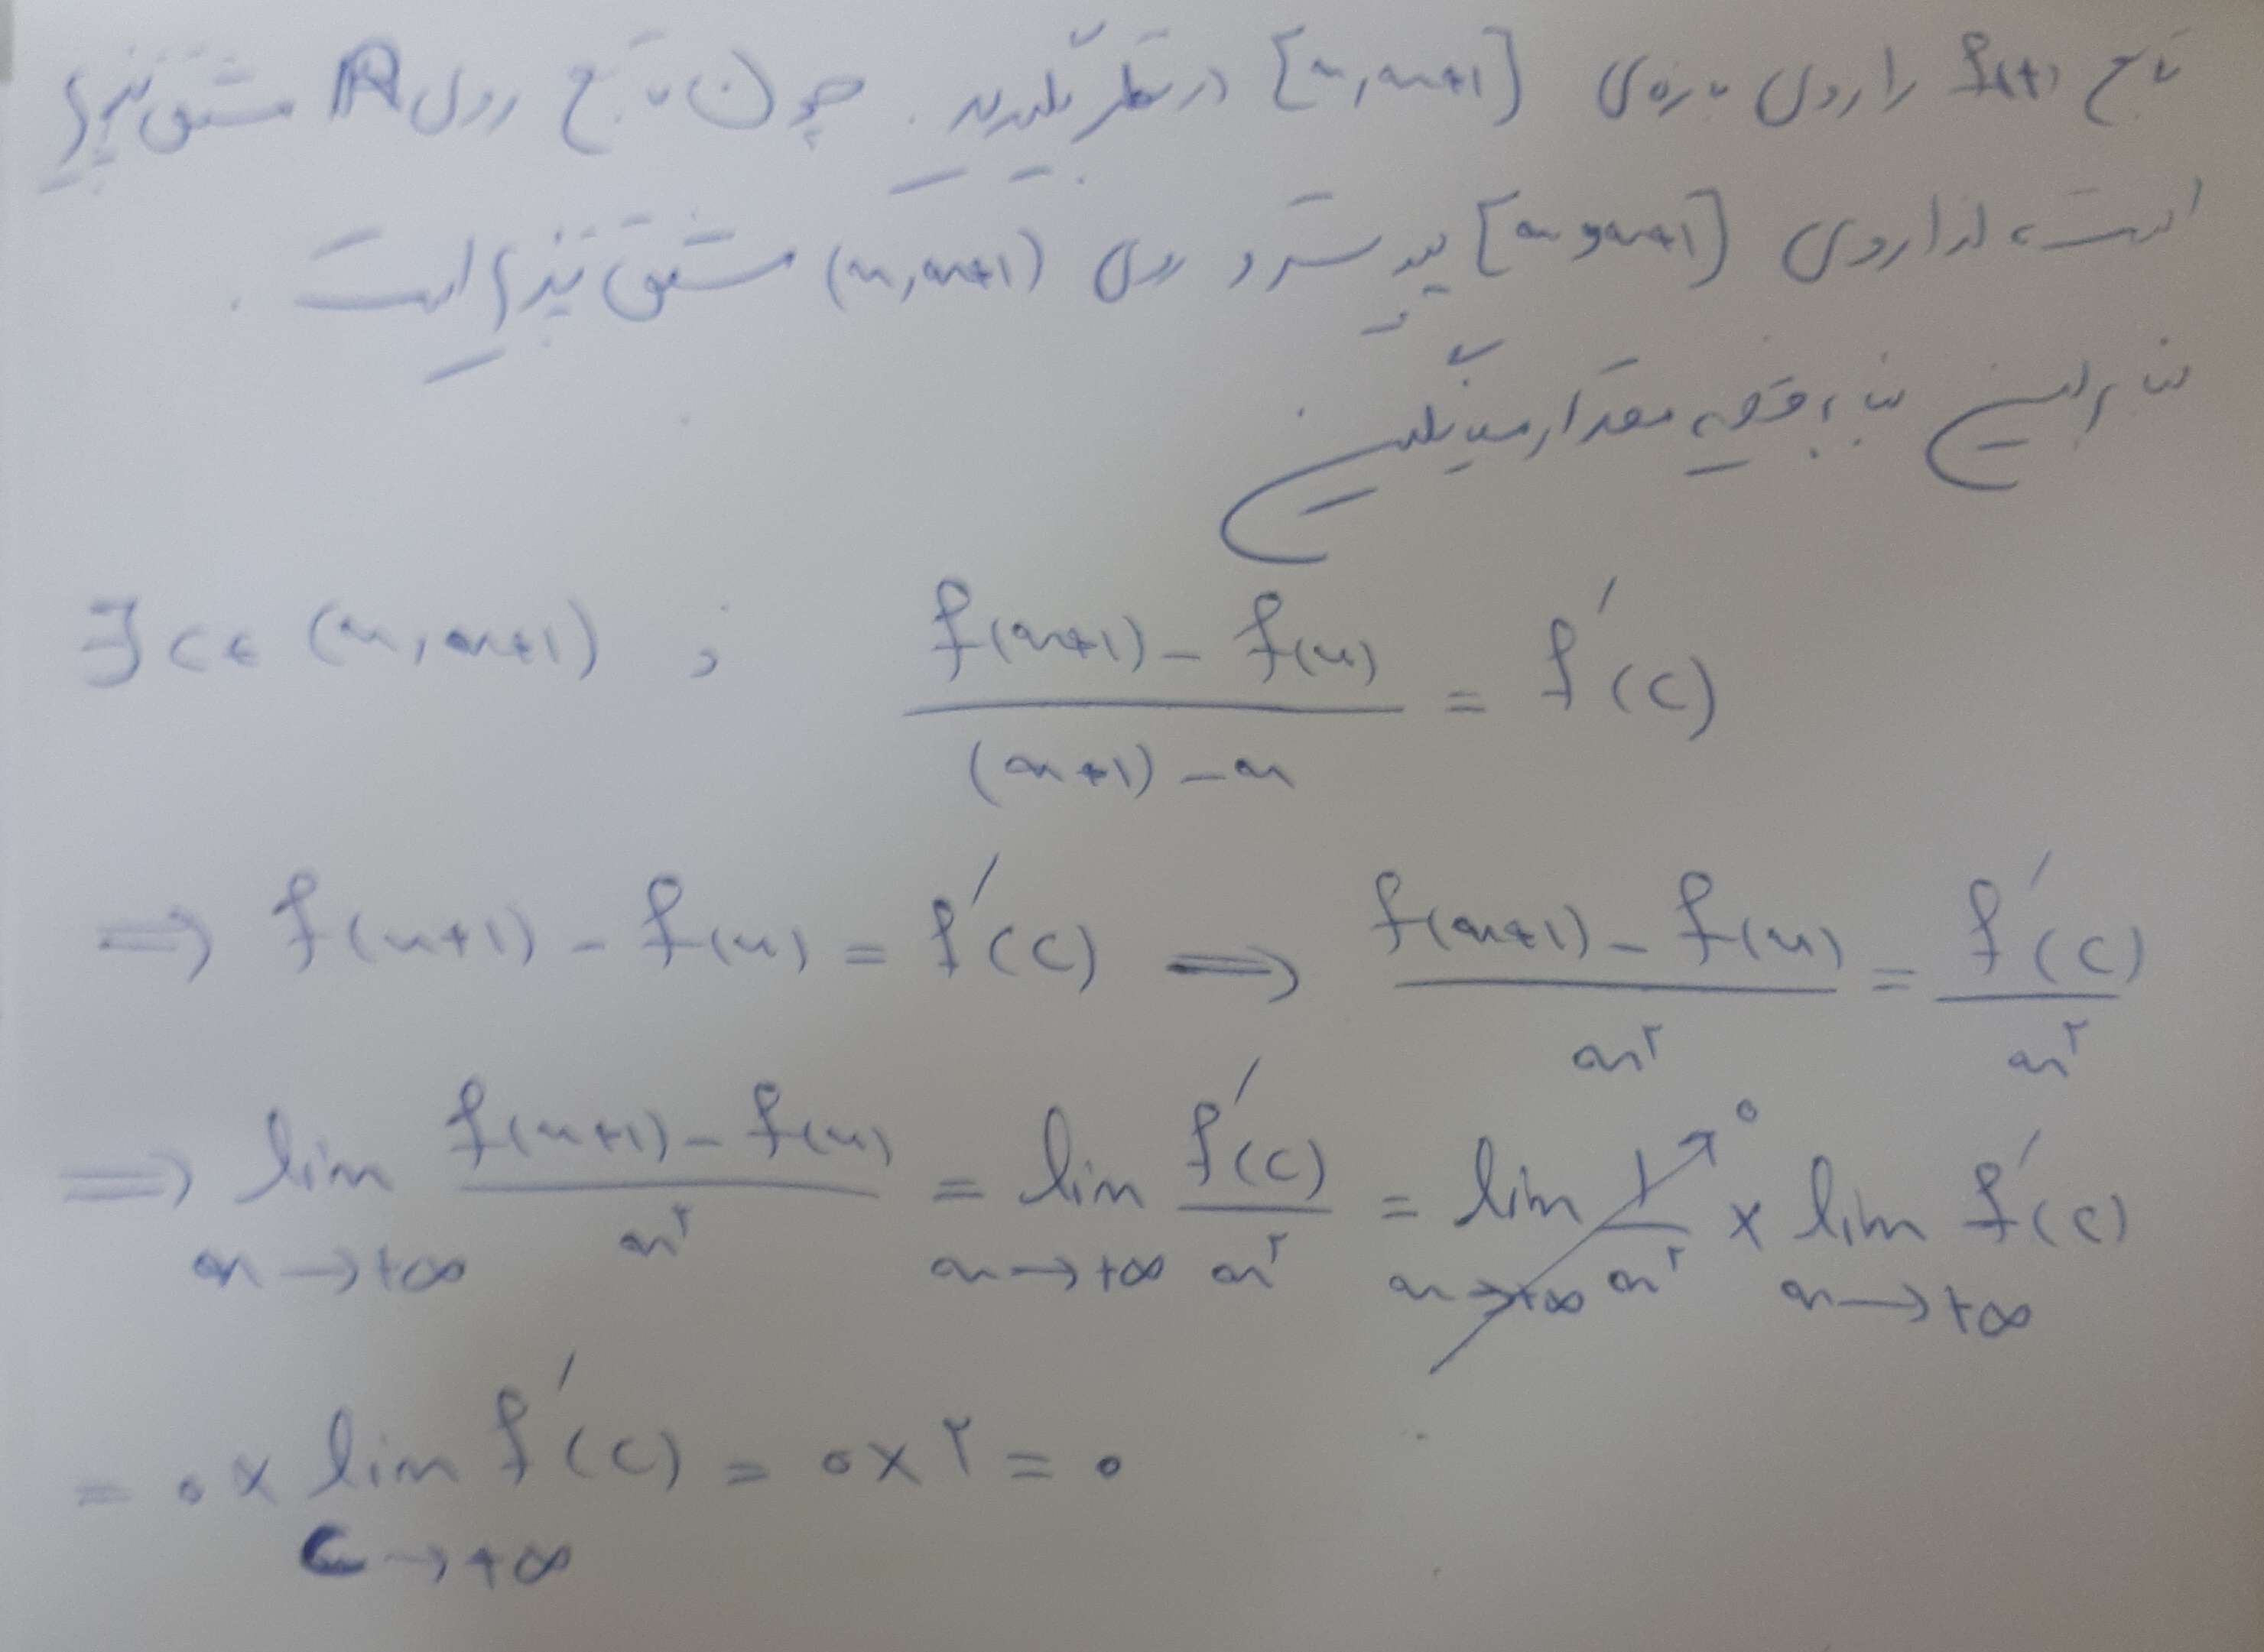 تابع f(t) را روی بازه‌ی [x, x+1] در نظر بگیرید. چون تابع روی R مشتق پذیر
است، لذا روی [x, x+1] پیوسته و روی (x, x+1) مشتق پذیر است.
بنابراین بنابر قضیه مقدار میانگین
∃ c ∈ (x, x+1) ; (f(x+1) - f(x)) / ((x+1) - x) = f'(c)
⇒ f(x+1) - f(x) = f'(c) ⇒ (f(x+1) - f(x)) / x^۲ = f'(c) / x^۲
⇒ lim x→+∞ (f(x+1) - f(x)) / x^۲ = lim x→+∞ f'(c) / x^۲ = lim x→+∞ 1 / x^۲ ↗ ۰ × lim x→+∞ f'(c)
= ۰ × lim c→+∞ f'(c) = ۰ × ۲ = ۰